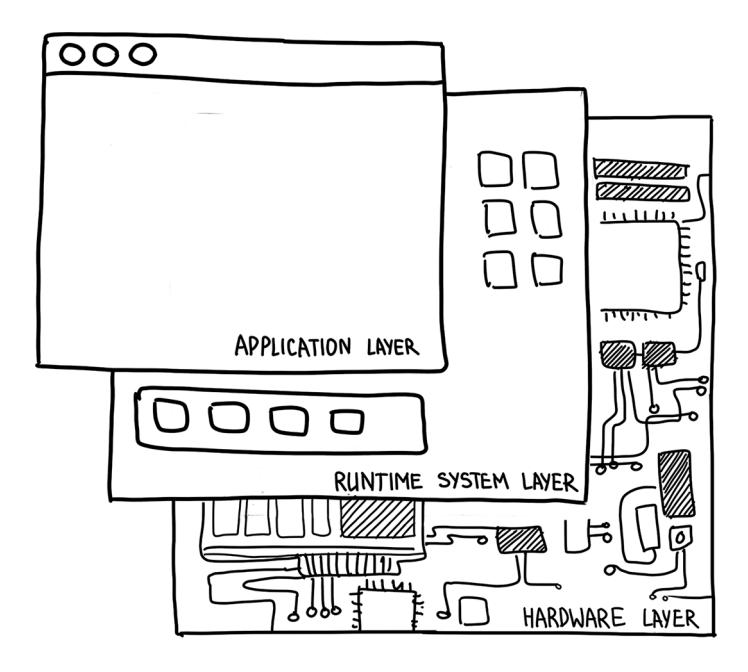 APPLICATION LAYER
RUNTIME SYSTEM LAYER
HARDWARE LAYER